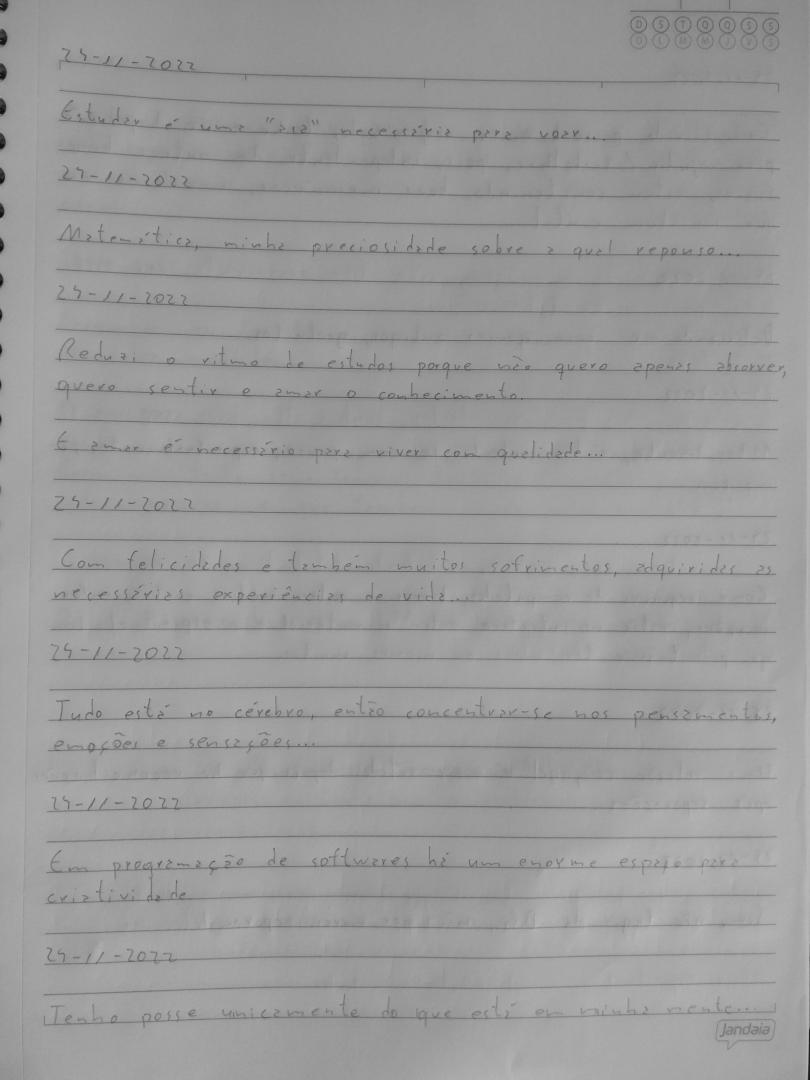 D S T Q Q S S
D L M M J V S
24-11-2022
Estudar é uma "asa" necessária para voar...
24-11-2022
Matemática, minha preciosidade sobre a qual repouso...
24-11-2022
Reduzi o ritmo de estudos porque não quero apenas absorver,
quero sentir e amar o conhecimento.
E amar é necessário para viver com qualidade...
24-11-2022
Com felicidades e também muitos sofrimentos, adquiridas as
necessárias experiências de vida...
24-11-2022
Tudo está no cérebro, então concentrar-se nos pensamentos,
emoções e sensações...
24-11-2022
Em programação de softwares há um enorme espaço para
criatividade
24-11-2022
Tenho posse unicamente do que está em minha mente...
Jandaia